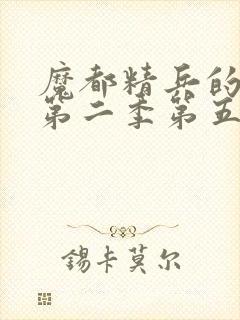 魔都精兵的
第二季第五
锡卡莫尔